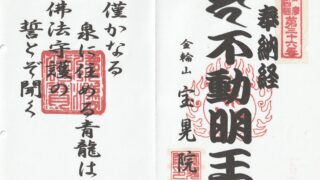 奉納経
不動明王
金輪山
宝晃院
僅かなる
泉に住める青龍は
佛法守護の
誓とぞ聞く